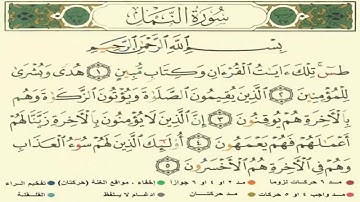 سُورَةُ النَّمْلِ
بِسْمِ ٱللَّهِ ٱلرَّحْمَٰنِ ٱلرَّحِيمِ
طسٓ ۚ تِلْكَ ءَايَٰتُ ٱلْقُرْءَانِ وَكِتَابٍ مُّبِينٍ ١ هُدًى وَبُشْرَىٰ
لِلْمُؤْمِنِينَ ٢ ٱلَّذِينَ يُقِيمُونَ ٱلصَّلَوٰةَ وَيُؤْتُونَ ٱلزَّكَوٰةَ وَهُم
بِٱلْءَاخِرَةِ هُمْ يُوقِنُونَ ٣ إِنَّ ٱلَّذِينَ لَا يُؤْمِنُونَ بِٱلْءَاخِرَةِ زَيَّنَّا لَهُمْ
أَعْمَٰلَهُمْ فَهُمْ يَعْمَهُونَ ٤ أُو۟لَٰٓئِكَ ٱلَّذِينَ لَهُمْ سُوٓءُ ٱلْعَذَابِ
وَهُمْ فِى ٱلْءَاخِرَةِ هُمُ ٱلْأَخْسَرُونَ ٥
مد ٦ حركات لزوما مد ٢ أو ٤ أو ٦ جوازا إخفاء، ومواقع الغنة (حركتان) تفخيم الراء
مد واجب ٤ أو ٥ حركات مد حركتان إدغام، وما لا يلفظ القلقلة